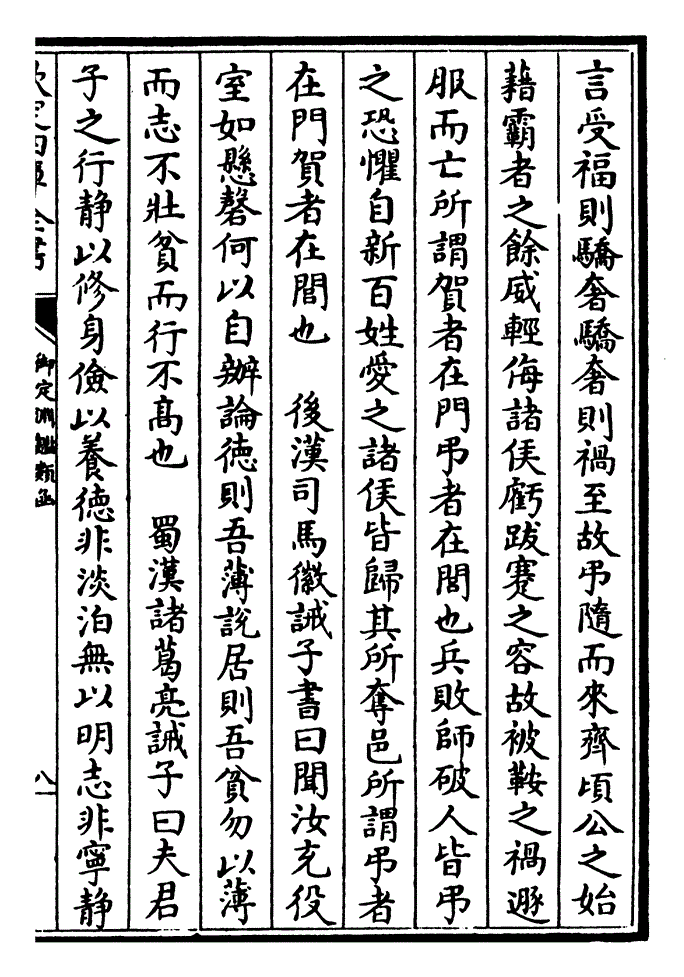 言受福則驕奢驕奢則禍至故弔隨而來齊頃公之始
藉霸者之餘威輕侮諸侯虧跋蹇之容故被鞍之禍遯
服而亡所謂賀者在門弔者在閭也兵敗師破人皆弔
之恐懼自新百姓愛之諸侯皆歸其所奪邑所謂弔者
在門賀者在閭也　後漢司馬徽誡子書曰聞汝充役
室如懸磬何以自辦論徳則吾薄說居則吾貧勿以薄
而志不壯貧而行不髙也　蜀漢諸葛亮誡子曰夫君
子之行静以修身儉以養徳非淡泊無以明志非寧静
御定淵鑑類函
八